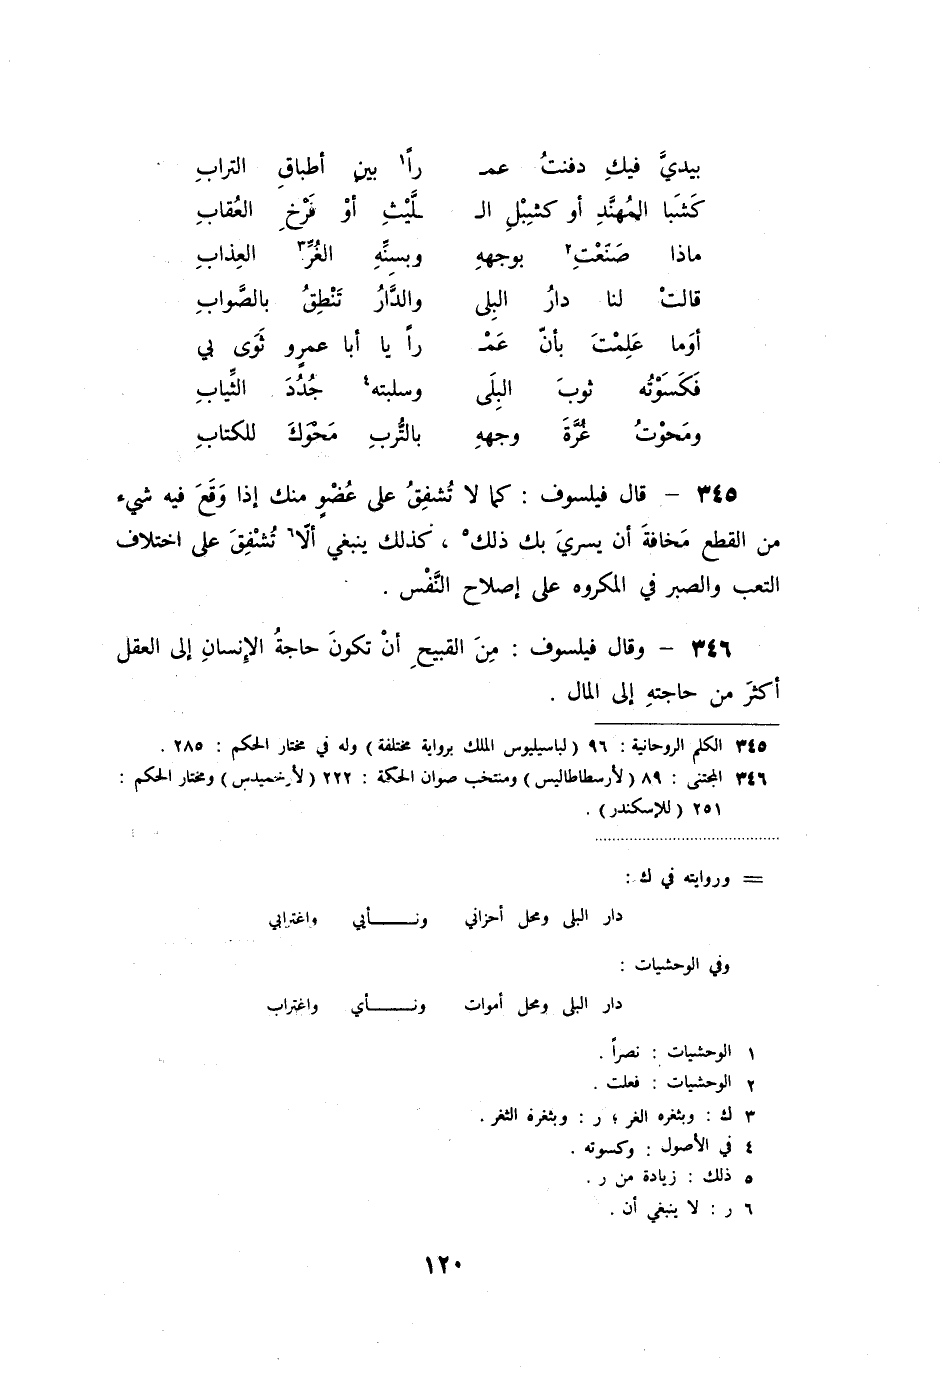 بيديَّ فيكِ دفنتُ عمـ راً١ بين أطباقِ الترابِ
كَشَبَا المُهنَّدِ أو كشِبْلِ الـ ـلَّيْثِ أوْ فَرْخِ العُقابِ
ماذا صَنَعْتِ٢ بوجههِ وبسنِّهِ الغُرِّ٣ العِذابِ
قالتْ لنا دارُ البِلى والدَّارُ تَنْطِقُ بالصَّوابِ
أوَما عَلِمْتَ بأنّ عَمْـ راً يا أبا عمرٍو ثَوَى بي
فَكَسَوْتُه ثوبَ البِلَى وسلبته٤ جُدُدَ الثِّيابِ
ومَحوْتُ غُرَّةَ وجههِ بالتُّربِ مَحْوَكَ للكتابِ
٣٤٥ – قال فيلسوف : كما لا تُشفِقُ على عُضْوٍ منك إذا وَقَعَ فيه شيء
من القطع مَخافةَ أن يسريَ بك ذلك٥ ، كذلك ينبغي ألّا٦ تُشْفِقَ على اختلاف
التعب والصبر في المكروه على إصلاح النَّفْس .
٣٤٦ – وقال فيلسوف : مِنَ القبيحِ أنْ تكونَ حاجةُ الإنسانِ إلى العقل
أكثرَ من حاجتهِ إلى المال .
٣٤٥ الكلم الروحانية : ٩٦ (لباسيليوس الملك برواية مختلفة) وله في مختار الحكم : ٢٨٥ .
٣٤٦ المجتنى : ٨٩ (لأرسطاطاليس) ومنتخب صوان الحكمة : ٢٢٢ (لأرخميدس) ومختار الحكم :
٢٥١ (للإسكندر) .
= وروايته في ك :
دار البلى ومحل أحزاني ونــــأيي واغترابي
وفي الوحشيات :
دار البلى ومحل أموات ونــــأي واغتراب
١ الوحشيات : نصراً .
٢ الوحشيات : فعلت .
٣ ك : وبثغره الغر ؛ ر : وبثغرة الثغر .
٤ في الأصول : وكسوته .
٥ ذلك : زيادة من ر .
٦ ر : لا ينبغي أن .
١٢٠